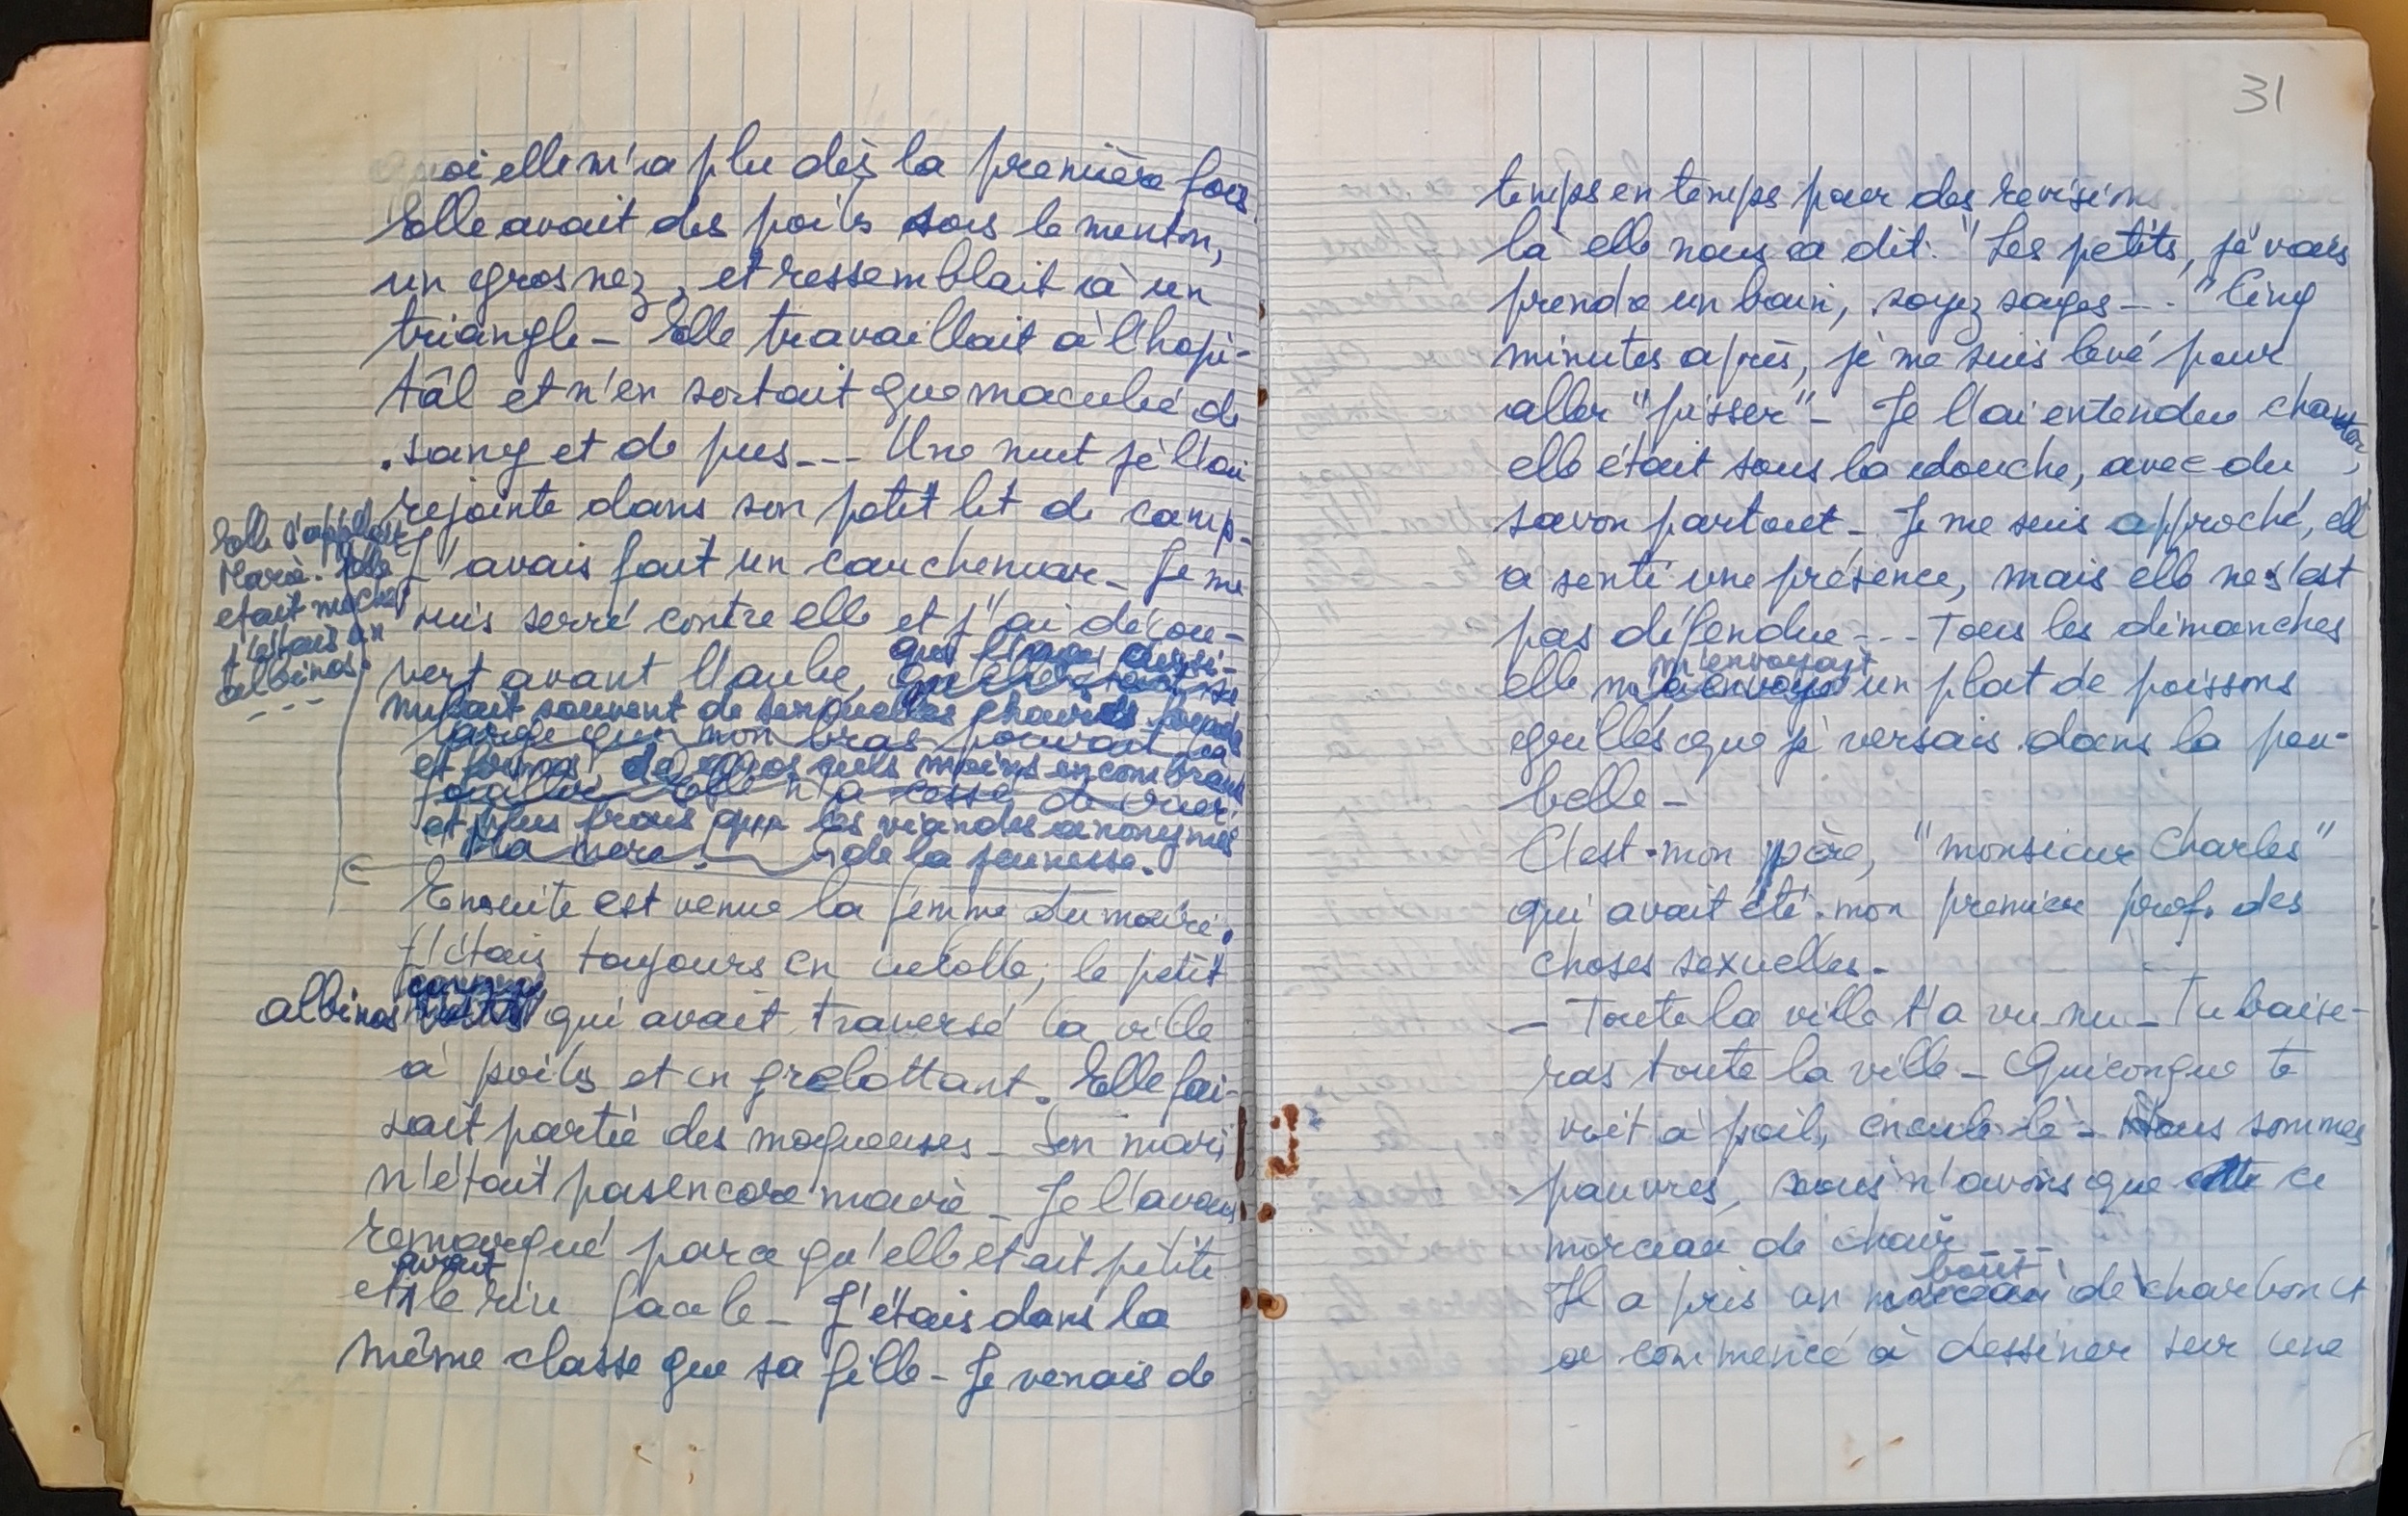 quoi elle m'a plu dès la première fois
Elle avait des poils sous le menton,
un gros nez, et ressemblait à un
triangle - Elle travaillait à l'hopi-
tâl et n'en sortait que maculée de
sang et de pus --- Une nuit je l'ai
rejointe dans son petit lit de camp -
Elle s'appelait
Maria. Elle
était moche,
j'étais un
albinos.
---
J'avais fait un cauchemar - Je me
suis serré contre elle et j'ai décou-
vert avant l'aube, que l'age dissi-
mulait souvent de
large que mon bras pouvait
et fermes, de moins encombrants
Elle n'a cessé de crier:
et plus frais que les viandes anonymes
Ma mère! de la jeunesse.
Ensuite est venue la femme du maire.
J'étais toujours en culotte, le petit
albinos qui avait traversé la ville
à poils et en grelottant. Elle fai-
sait partie des moqueuses - Son mari
n'était pas encore maire - Je l'avais
remarqué parce qu'elle était petite
et avait le rire facile - J'étais dans la
même classe que sa fille - Je venais de
31
temps en temps pour des revisions.
là elle nous a dit: "Les petits, je vais
prendre un bain, soyez sages --- " Cinq
minutes après, je me suis levé pour
aller "pisser" - Je l'ai entendue chanter,
elle était sous la douche, avec du
savon partout - Je me suis approché, elle
a senti une présence, mais elle ne s'est
pas défendue --- Tous les dimanches
m'envoyait
elle m'a envoyé un plat de poissons
grillés que je versais dans la pou-
belle -
C'est mon père, "monsieur Charles"
qui avait été mon premier prof. des
choses sexuelles -
- Toute la ville t'a vu nu - Tu baise-
ras toute la ville - Quiconque te
voit à poil, encule le - Nous sommes
pauvres, nous n'avons que ce
morceau de chair ---
bout
Il a pris un morceau de charbon et
a commencé à dessiner sur une